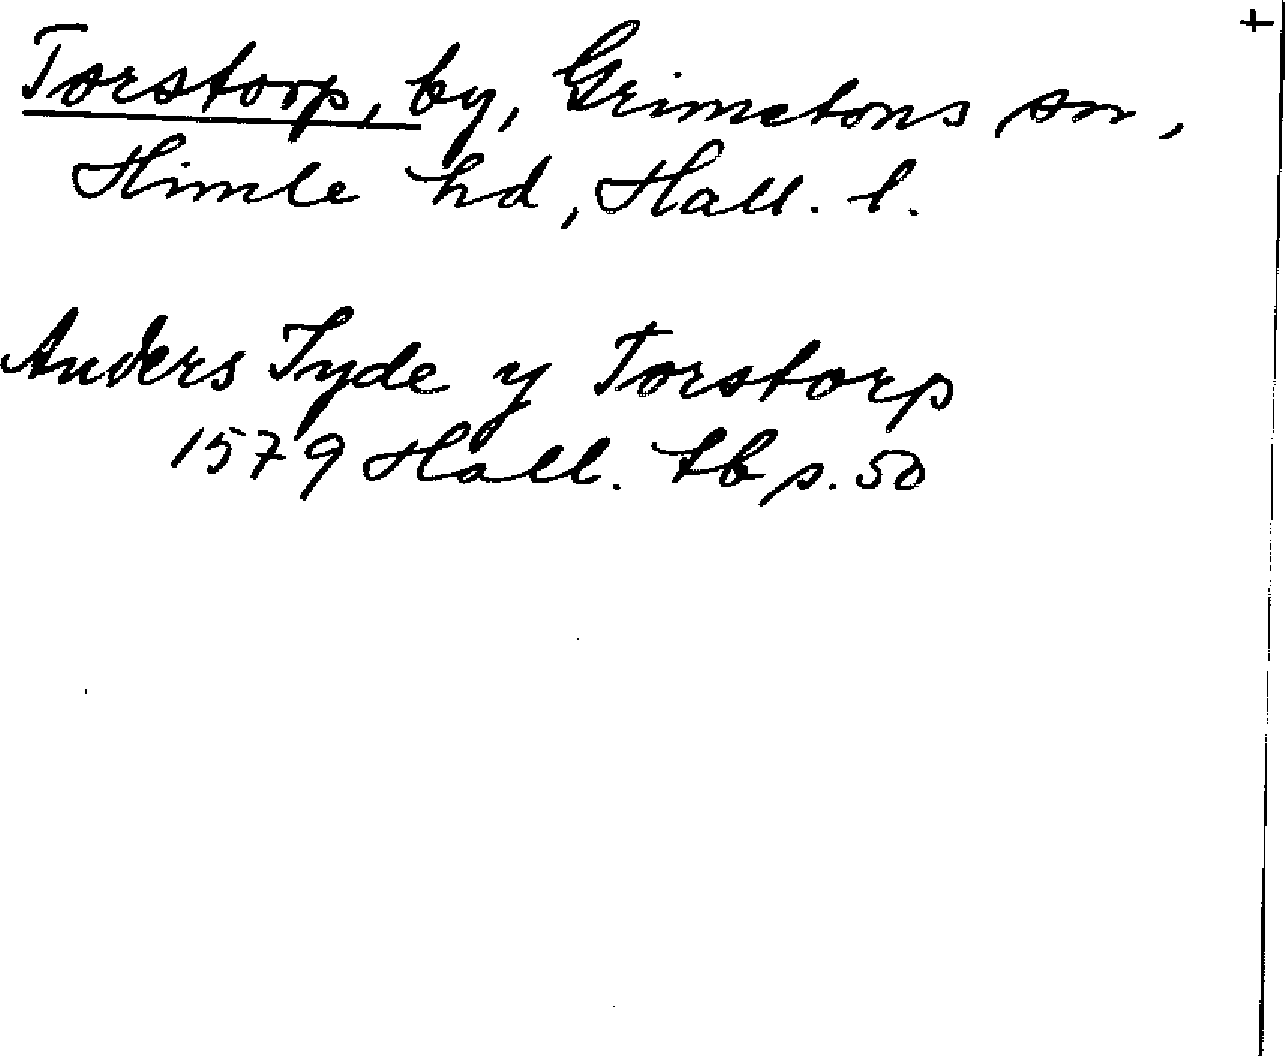 Torstorp, by, Grimetons sn,
Himle hd, Hall. l.
Anders Tyde y Torstorp
1579 Hall. tb s. 50